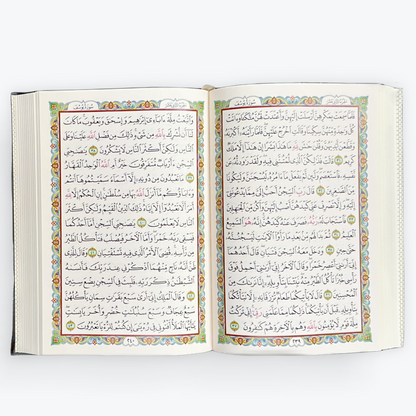 سُورَةُ يُوسُفَ
فَلَمَّا سَمِعَتْ بِمَكْرِهِنَّ أَرْسَلَتْ إِلَيْهِنَّ وَأَعْتَدَتْ لَهُنَّ مُتَّكَـًٔا وَءَاتَتْ
كُلَّ وَٰحِدَةٍ مِّنْهُنَّ سِكِّينًا وَقَالَتِ ٱخْرُجْ عَلَيْهِنَّ فَلَمَّا رَأَيْنَهُۥٓ أَكْبَرْنَهُۥ
وَقَطَّعْنَ أَيْدِيَهُنَّ وَقُلْنَ حَٰشَ لِلَّهِ مَا هَٰذَا بَشَرًا إِنْ هَٰذَآ إِلَّا مَلَكٌ
كَرِيمٌ ٣١ قَالَتْ فَذَٰلِكُنَّ ٱلَّذِى لُمْتُنَّنِى فِيهِ وَلَقَدْ رَٰوَدتُّهُۥ عَن
نَّفْسِهِۦ فَٱسْتَعْصَمَ وَلَئِن لَّمْ يَفْعَلْ مَآ ءَامُرُهُۥ لَيُسْجَنَنَّ وَلَيَكُونًا
مِّنَ ٱلصَّٰغِرِينَ ٣٢ قَالَ رَبِّ ٱلسِّجْنُ أَحَبُّ إِلَىَّ مِمَّا يَدْعُونَنِىٓ إِلَيْهِ
وَإِلَّا تَصْرِفْ عَنِّى كَيْدَهُنَّ أَصْبُ إِلَيْهِنَّ وَأَكُن مِّنَ ٱلْجَٰهِلِينَ
٣٣ فَٱسْتَجَابَ لَهُۥ رَبُّهُۥ فَصَرَفَ عَنْهُ كَيْدَهُنَّ إِنَّهُۥ هُوَ ٱلسَّمِيعُ
ٱلْعَلِيمُ ٣٤ ثُمَّ بَدَا لَهُم مِّنۢ بَعْدِ مَا رَأَوُا۟ ٱلْـَٔايَٰتِ لَيَسْجُنُنَّهُۥ
حَتَّىٰ حِينٍ ٣٥ وَدَخَلَ مَعَهُ ٱلسِّجْنَ فَتَيَانِ قَالَ أَحَدُهُمَآ
إِنِّىٓ أَرَىٰنِىٓ أَعْصِرُ خَمْرًا وَقَالَ ٱلْـَٔاخَرُ إِنِّىٓ أَرَىٰنِىٓ أَحْمِلُ فَوْقَ
رَأْسِى خُبْزًا تَأْكُلُ ٱلطَّيْرُ مِنْهُ نَبِّئْنَا بِتَأْوِيلِهِۦٓ إِنَّا نَرَىٰكَ مِنَ
ٱلْمُحْسِنِينَ ٣٦ قَالَ لَا يَأْتِيكُمَا طَعَامٌ تُرْزَقَانِهِۦٓ إِلَّا نَبَّأْتُكُمَا
بِتَأْوِيلِهِۦ قَبْلَ أَن يَأْتِيَكُمَا ذَٰلِكُمَا مِمَّا عَلَّمَنِى رَبِّىٓ إِنِّى تَرَكْتُ
مِلَّةَ قَوْمٍ لَّا يُؤْمِنُونَ بِٱللَّهِ وَهُم بِٱلْـَٔاخِرَةِ هُمْ كَٰفِرُونَ ٣٧
٢٣٩
سُورَةُ يُوسُفَ
وَٱتَّبَعْتُ مِلَّةَ ءَابَآءِىٓ إِبْرَٰهِيمَ وَإِسْحَٰقَ وَيَعْقُوبَ مَا كَانَ
لَنَآ أَن نُّشْرِكَ بِٱللَّهِ مِن شَىْءٍ ذَٰلِكَ مِن فَضْلِ ٱللَّهِ عَلَيْنَا وَعَلَى
ٱلنَّاسِ وَلَٰكِنَّ أَكْثَرَ ٱلنَّاسِ لَا يَشْكُرُونَ ٣٨ يَٰصَىٰحِبَىِ
ٱلسِّجْنِ ءَأَرْبَابٌ مُّتَفَرِّقُونَ خَيْرٌ أَمِ ٱللَّهُ ٱلْوَٰحِدُ ٱلْقَهَّارُ
٣٩ مَا تَعْبُدُونَ مِن دُونِهِۦٓ إِلَّآ أَسْمَآءً سَمَّيْتُمُوهَآ أَنتُمْ
وَءَابَآؤُكُم مَّآ أَنزَلَ ٱللَّهُ بِهَا مِن سُلْطَٰنٍ إِنِ ٱلْحُكْمُ إِلَّا لِلَّهِ
أَمَرَ أَلَّا تَعْبُدُوٓا۟ إِلَّآ إِيَّاهُ ذَٰلِكَ ٱلدِّينُ ٱلْقَيِّمُ وَلَٰكِنَّ أَكْثَرَ
ٱلنَّاسِ لَا يَعْلَمُونَ ٤٠ يَٰصَىٰحِبَىِ ٱلسِّجْنِ أَمَّآ أَحَدُكُمَا
فَيَسْقِى رَبَّهُۥ خَمْرًا وَأَمَّا ٱلْـَٔاخَرُ فَيُصْلَبُ فَتَأْكُلُ ٱلطَّيْرُ
مِن رَّأْسِهِۦ قُضِىَ ٱلْأَمْرُ ٱلَّذِى فِيهِ تَسْتَفْتِيَانِ ٤١ وَقَالَ لِلَّذِى
ظَنَّ أَنَّهُۥ نَاجٍ مِّنْهُمَا ٱذْكُرْنِى عِندَ رَبِّكَ فَأَنسَىٰهُ
ٱلشَّيْطَٰنُ ذِكْرَ رَبِّهِۦ فَلَبِثَ فِى ٱلسِّجْنِ بِضْعَ سِنِينَ
٤٢ وَقَالَ ٱلْمَلِكُ إِنِّىٓ أَرَىٰ سَبْعَ بَقَرَٰتٍ سِمَانٍ يَأْكُلُهُنَّ
سَبْعٌ عِجَافٌ وَسَبْعَ سُنۢبُلَٰتٍ خُضْرٍ وَأُخَرَ يَابِسَٰتٍ
يَٰٓأَيُّهَا ٱلْمَلَأُ أَفْتُونِى فِى رُءْيَٰىَ إِن كُنتُمْ لِلرُّءْيَا تَعْبُرُونَ ٤٣
٢٤٠